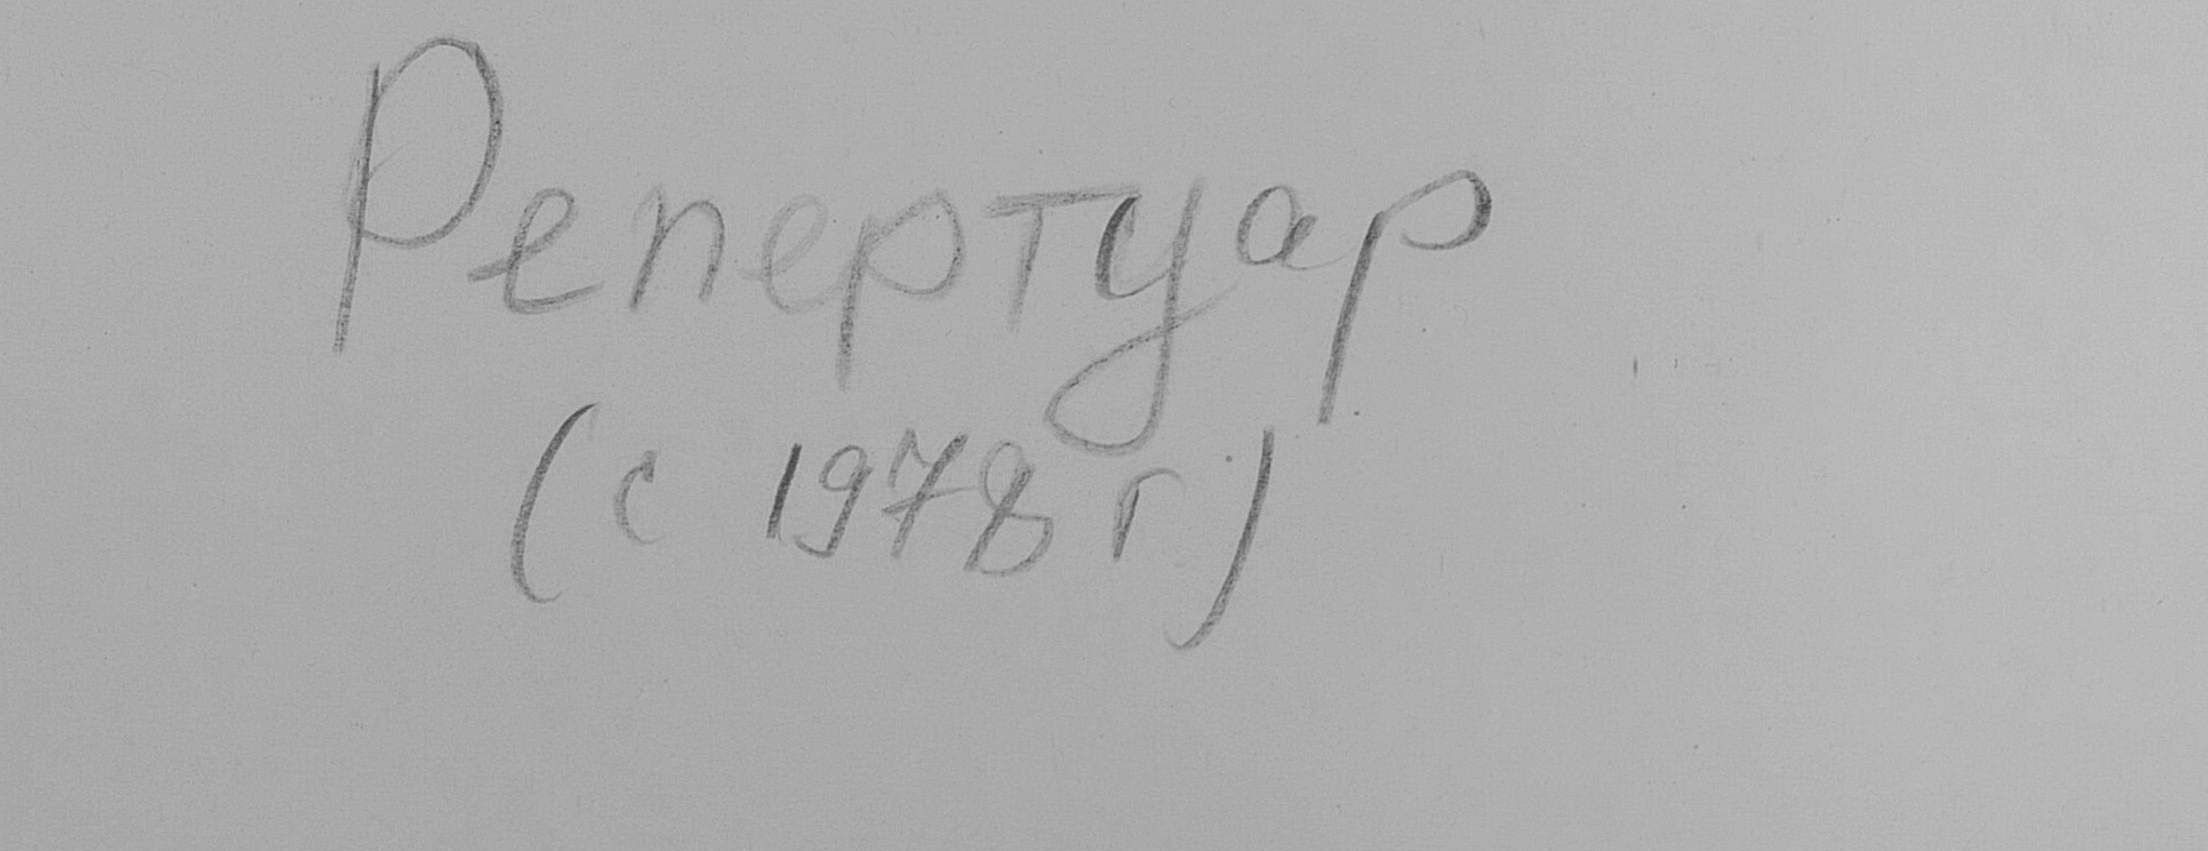 Репертуар
(с 1978 г)